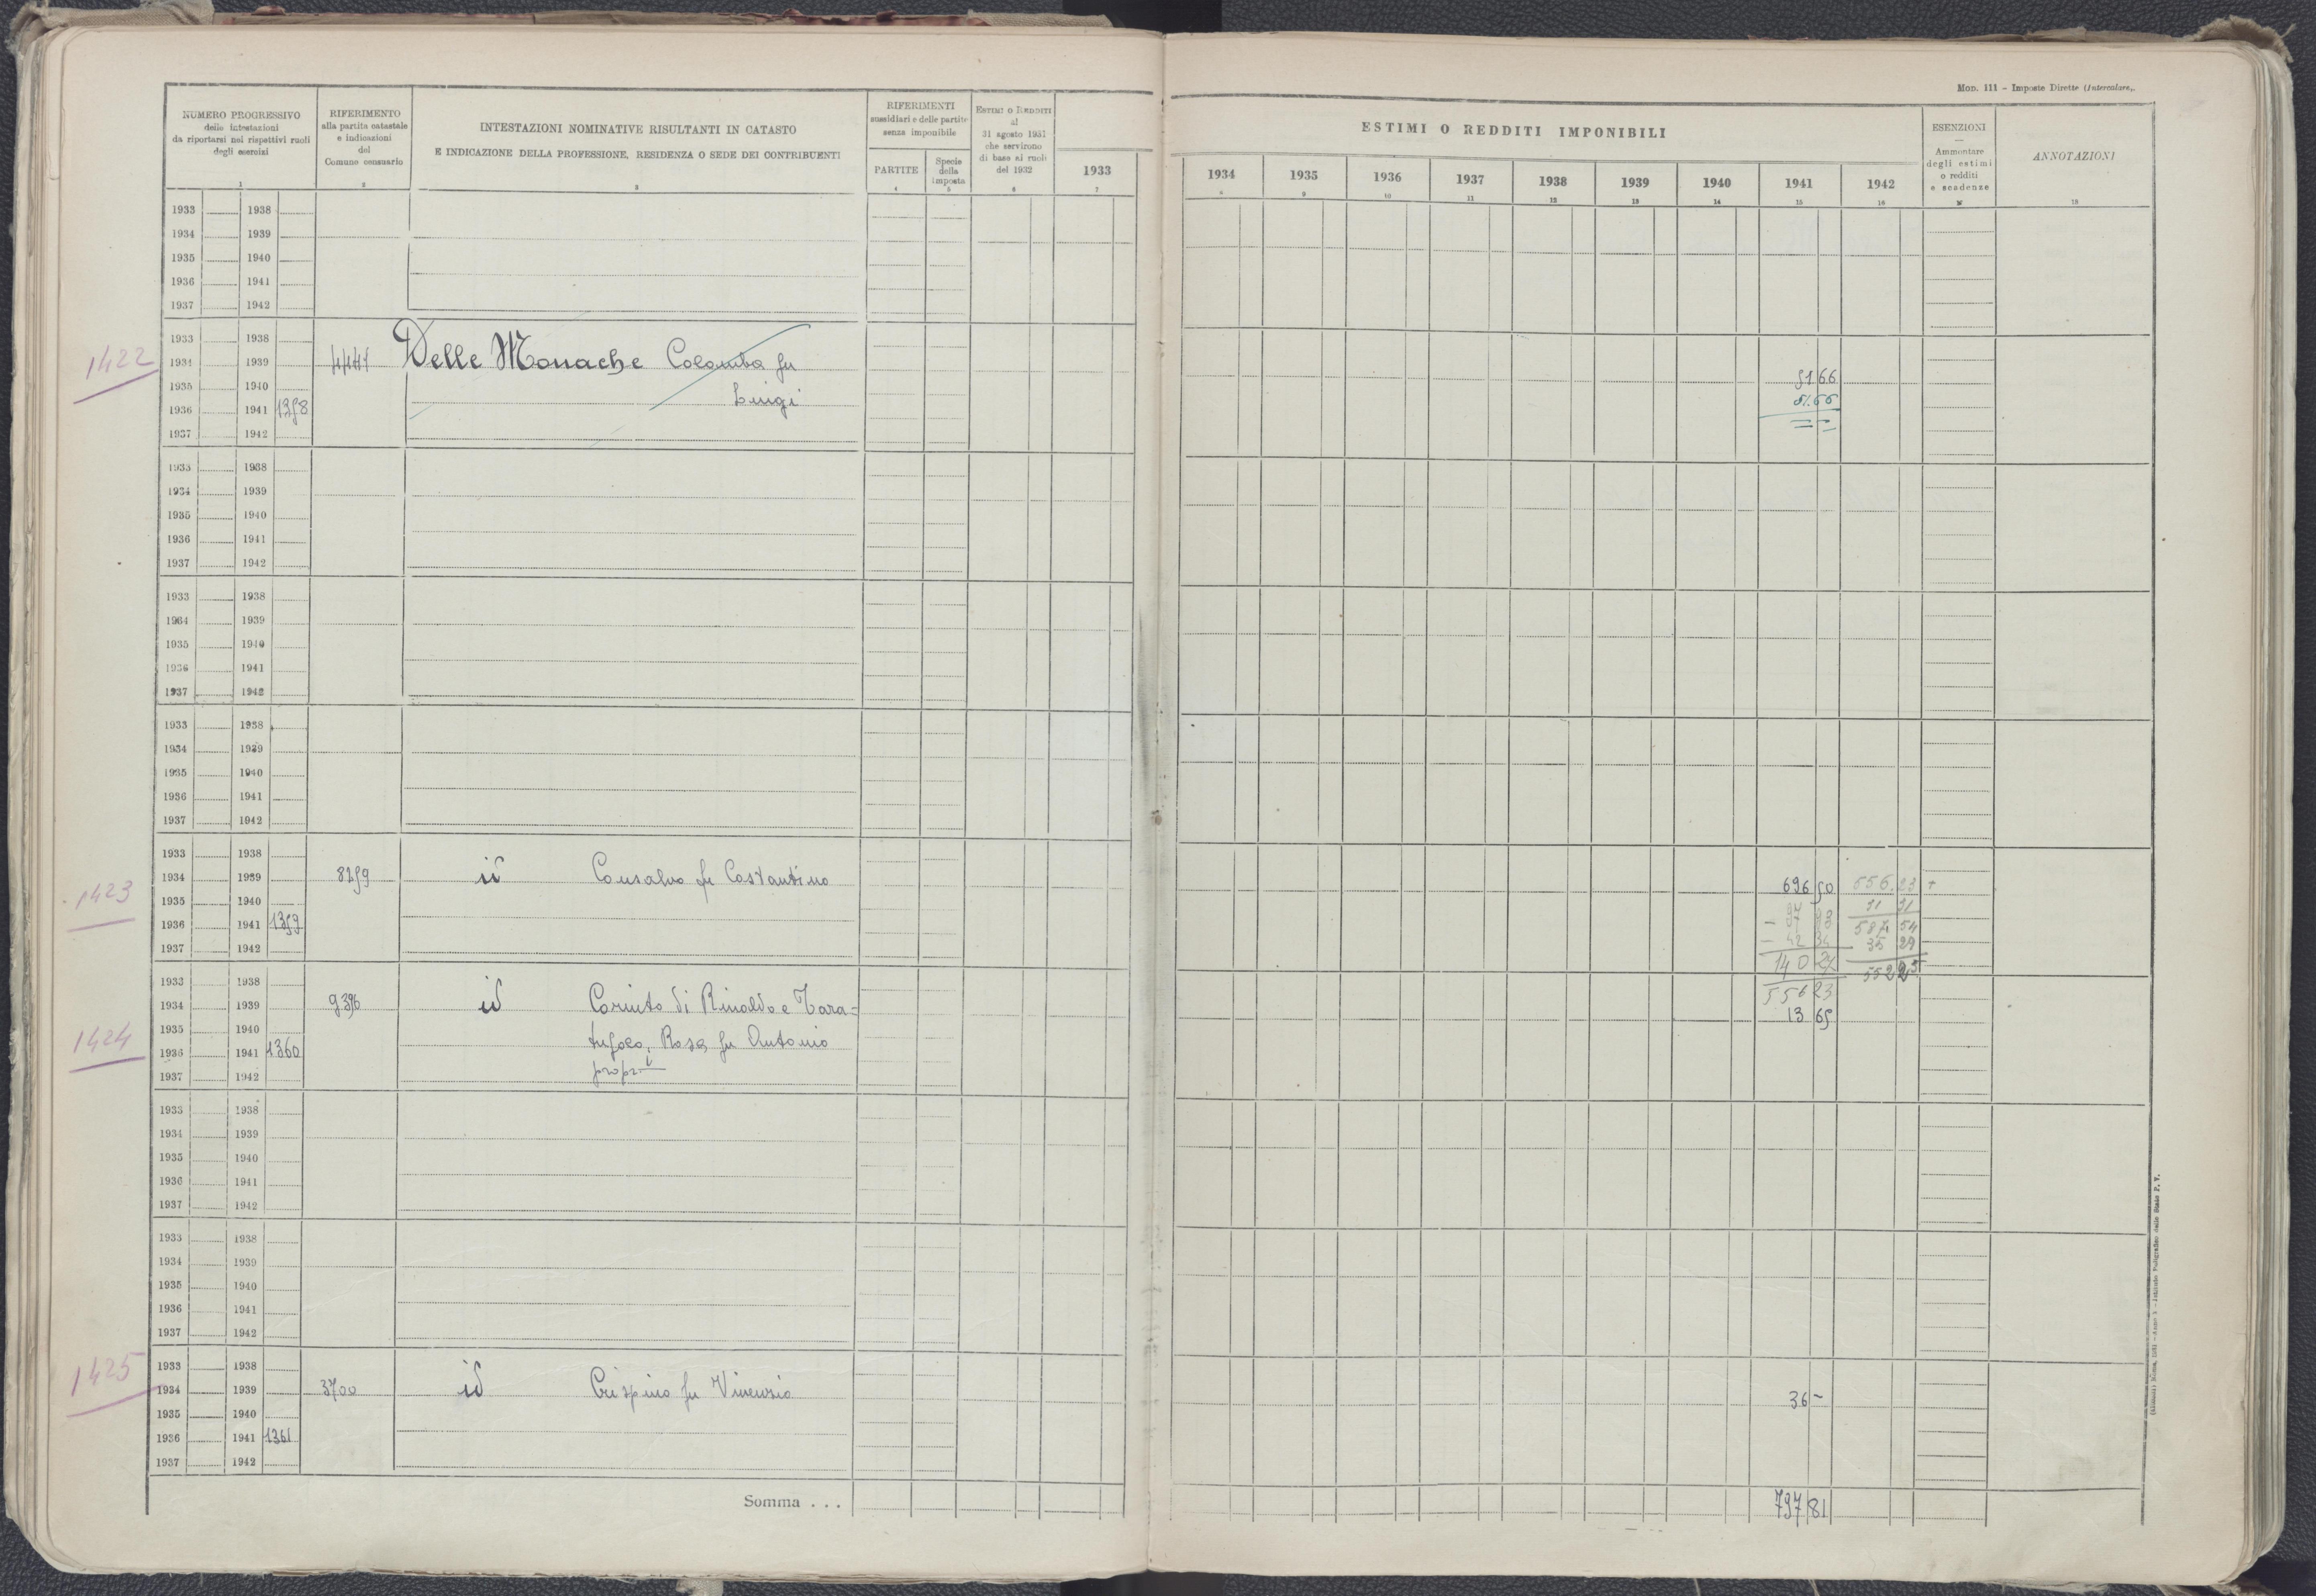 Mod. 111 - Imposte Dirette (Intercalare).
NUMERO PROGRESSIVO
delle intestazioni
da riportarsi nei rispettivi ruoli
degli esercizi
1
RIFERIMENTO
alla partita catastale
e indicazioni
del
Comune censuario
2
INTESTAZIONI NOMINATIVE RISULTANTI IN CATASTO
E INDICAZIONE DELLA PROFESSIONE, RESIDENZA O SEDE DEI CONTRIBUENTI
3
RIFERIMENTI
sussidiari e delle partite
senza imponibile
PARTITE
4
Specie
della
imposta
5
ESTIMI O REDDITI
al
31 agosto 1931
che servirono
di base ai ruoli
del 1932
6
1933
7
ESTIMI O REDDITI IMPONIBILI
1934 1935 1936 1937 1938 1939 1940 1941 1942
9 10 11 12 13 14 15 16
ESENZIONI
Ammontare
degli estimi
o redditi
e scadenze
ANNOTAZIONI
18
1933 1938
1934 1939
1935 1940
1936 1941
1937 1942
1422
1933 1938
1934 1939 Delle Monache Colomba fu
1935 1940 51 66
1936 1941 1358 Luigi 51.66
1937 1942
1933 1938
1934 1939
1935 1940
1936 1941
1937 1942
1933 1938
1934 1939
1935 1940
1936 1941
1937 1942
1933 1938
1934 1939
1935 1940
1936 1941
1937 1942
1423
1933 1938
1934 1939 8259 id Consalvo fu Costantino 696 50 556.23 +
1935 1940 31 31
1936 1941 1359 - 97 93 587 54
1937 1942 - 42 34 35 29
140 27 552 25
1424
1933 1938 556 23
1934 1939 9396 id Corinto di Rinaldo e Tara= 13 65
1935 1940
1936 1941 1360 tufolo, Rosa fu Antonio
1937 1942 propri
1933 1938
1934 1939
1935 1940
1936 1941
1937 1942
1933 1938
1934 1939
1935 1940
1936 1941
1937 1942
1425
1933 1938
1934 1939 3700 id Crispino fu Vincenzio 36 -
1935 1940
1936 1941 1361
1937 1942
Somma . . . 797 81